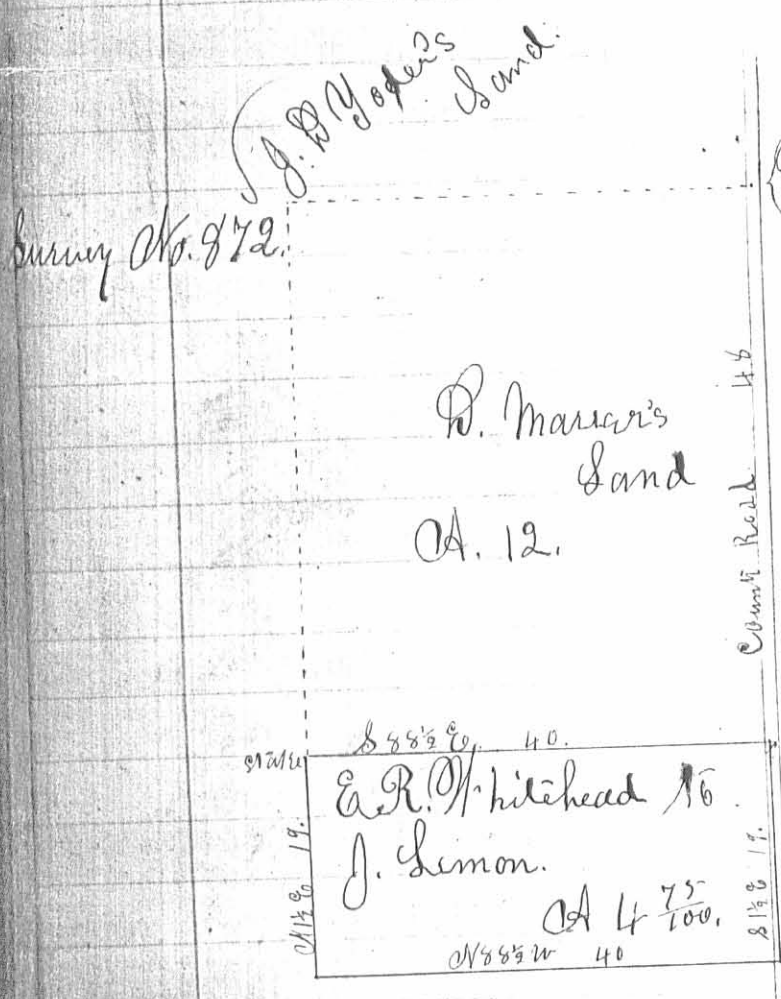 J. D Yoder's
Land.
Survey No. 872.
D.
Land
A. 12.
48
County Road
S 88½ E. 40.
stake
E. R. Whitehead to
J. Limon.
A 4 75/100.
N 1½ E 19.
S 1½ E 19.
N 88½ W 40